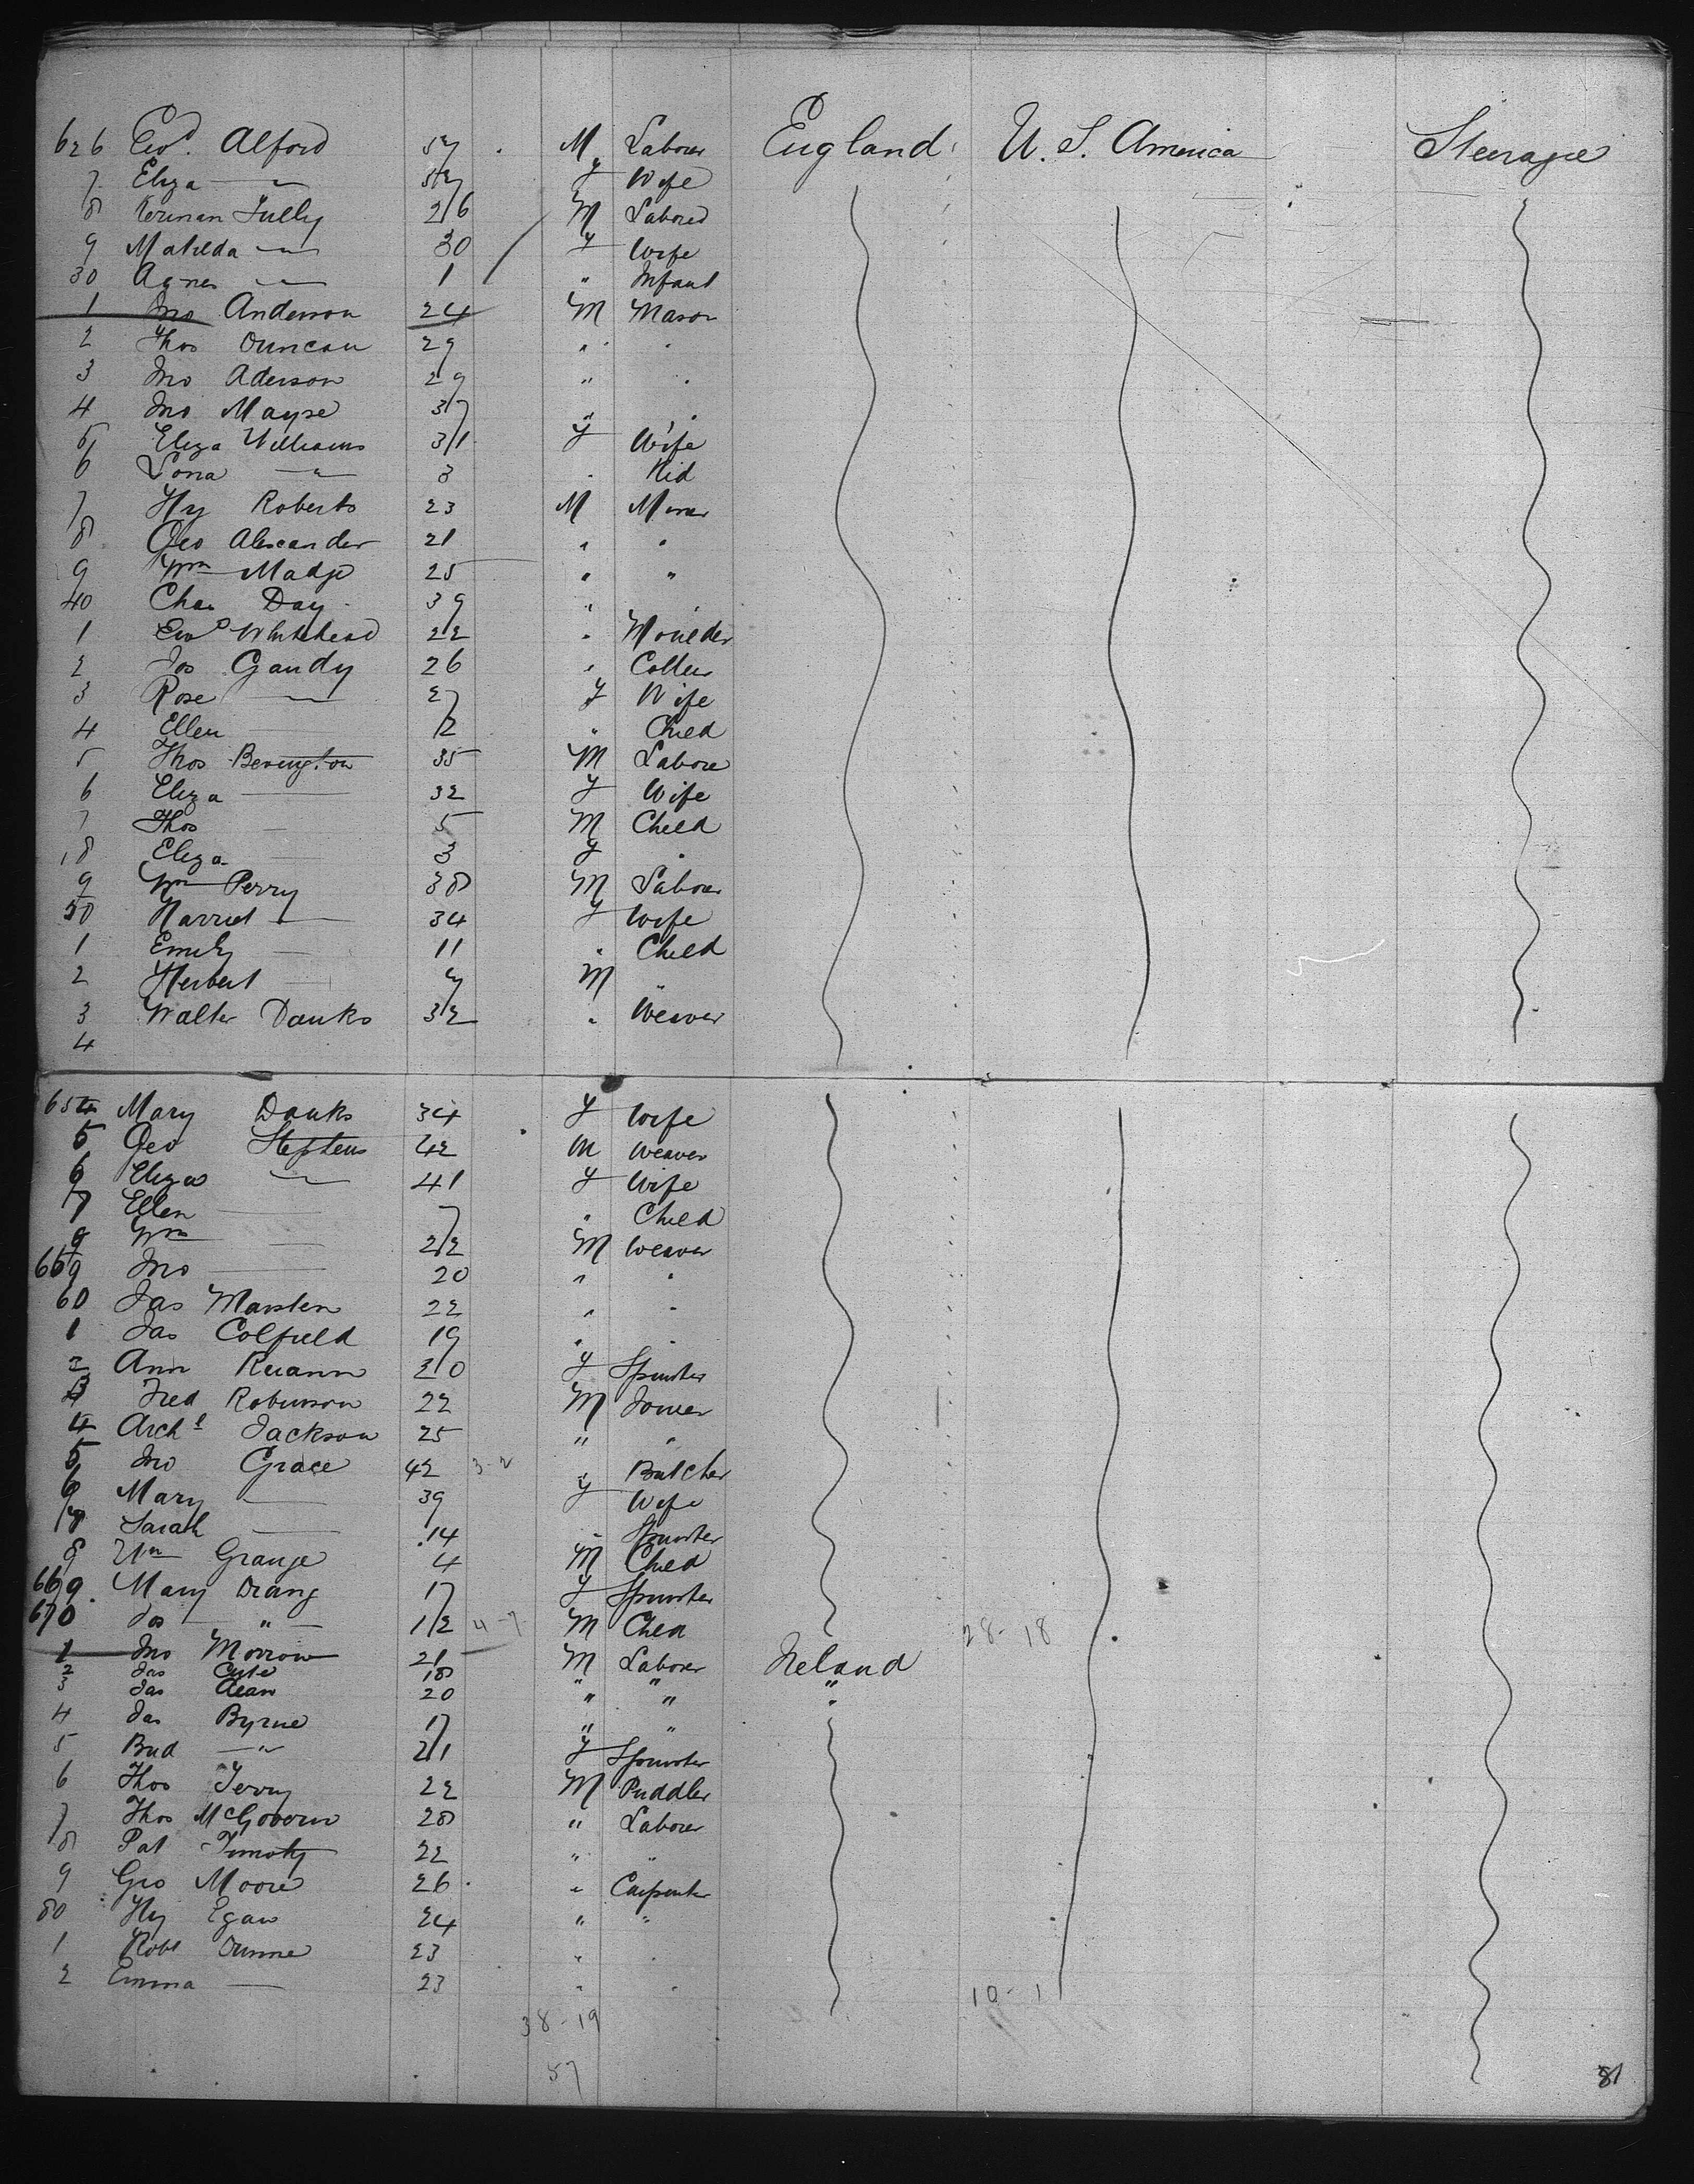 626 Edwd. Alford 57 M Laborer England U. S. America Steerage
7 Eliza " 57 F Wife
8 Tully 26 M Laborer
9 Matilda " 30 F Wife
30 Agnes " 1 " Infant
1 Jno Anderson 24 M Mason
2 Thos Duncan 29 " "
3 Jno Aderson 29 " "
4 Jno Mayse 37 " "
5 Eliza Williams 31 F Wife
6 Lona " 3 " Kid
7 Hy Roberts 23 M Miner
8 Geo Alexander 21 " "
9 Wm Madge 25 " "
40 Chas Day 39 " "
1 Edwd Whitehead 22 " Moulder
2 Jos Gandy 26 " Collier
3 Rose — 27 F Wife
4 Ellen — 12 " Child
5 Thos Bevington 35 M Laborer
6 Eliza — 32 F Wife
7 Thos — 5 M Child
8 Eliza — 3 F "
9 Wm Perry 38 M Laborer
50 Harriet — 34 F Wife
1 Emily — 11 " Child
2 Herbert — 9 M "
3 Walter Danks 32 " Weaver
4
654 Mary Danks 34 F Wife
5 Geo Stephens 42 M Weaver
6 Eliza " 41 F Wife
7 Ellen — 7 " Child
8 Wm — 22 M Weaver
659 Jno — 20 " "
60 Jas Marsten 22 " "
1 Jas Colfield 19 " "
2 Ann 20 F Spinster
3 Fred Robinson 22 M Joiner
4 Archd Jackson 25 " "
5 Jno Grace 42 3-2 " Butcher
6 Mary — 39 F Wife
7 Sarah — 14 " Spinster
8 Wm Grange 4 M Child
669 Mary Drang 17 F Spinster
670 Jas " 12 4-7 M Child 28-18
1 Jno Morrow 21 M Laborer Ireland
2 Jas 18 " " "
3 Jas Dean 20 " " "
4 Jas Byrne 17 " "
5 Brid " 21 F Spinster
6 Thos Terry 22 M Puddler
7 Thos McGovern 28 " Laborer
8 Pat Timoty 22 " "
9 Geo Moore 26 " Carpenter
80 Hy Egan 24 " "
1 Robt Dunne 23 " "
2 Emma — 23 " " 10-1
38-19
57
81